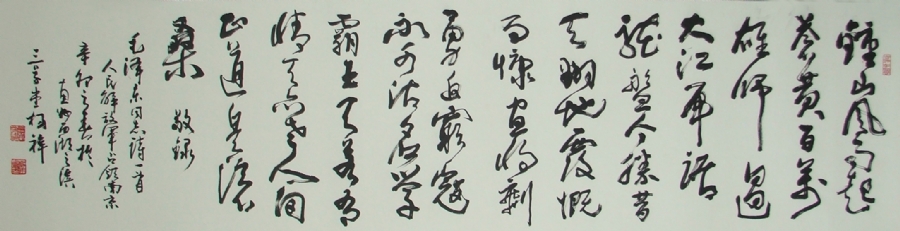 鐘山风雨起
蒼黄百萬
雄师過
大江虎踞
龙盤今勝昔
天翻地覆慨
而慷宜将剩
勇追窮寇
不可沽名学
霸王天若有
情天亦老人间
正道是滄
桑 敬録
毛泽东同志诗一首
人民解放军占领南京
辛卯之春於
州西湖之滨
三堂祥